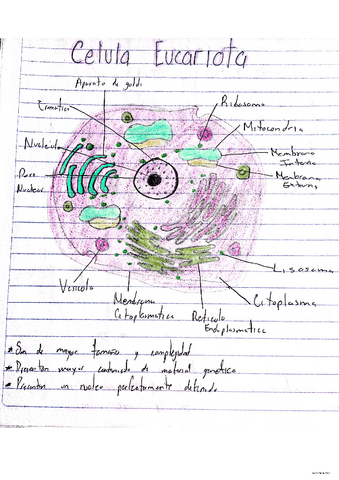 Celula Eucariota
Aparato de golgi
Cromatica
Ribosoma
Mitocondria
Nucleolo
Membrana
Interna
Poro
Nuclear
Membrana
Externa
Lisosoma
Vesicula
Citoplasma
Membrana
Citoplasmatica
Reticulo
Endoplasmatico
* Son de mayor tamaño y complejidad
* Presentan mayor contenido de material genetico
* Presentan un nucleo perfectamente definido